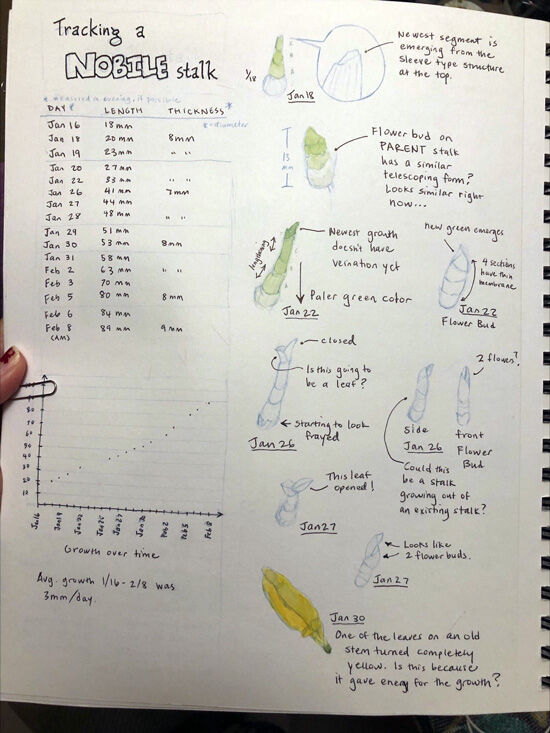 Tracking a
NOBILE stalk
* measured in evening, if possible
DAY* LENGTH THICKNESS*
*=diameter
Jan 16 18 mm
Jan 18 20 mm 8mm
Jan 19 23 mm " "
Jan 20 27 mm
Jan 22 33 mm " "
Jan 26 41 mm 7mm
Jan 27 44 mm
Jan 28 48 mm " "
Jan 29 51 mm
Jan 30 53 mm 8mm
Jan 31 58 mm
Feb 2 63 mm " "
Feb 3 70 mm
Feb 5 80 mm 8mm
Feb 6 84 mm
Feb 8 89 mm 9mm
(AM)
90
80
70
60
50
40
30
20
10
Jan 16
Jan 19
Jan 22
Jan 30
Feb 2
Feb 5
Feb 8
Growth over time
Avg. growth 1/16 - 2/8 was
3mm/day.
1/18
Jan 18
Newest segment is
emerging from the
sleeve type structure
at the top.
13
mm
Flower bud on
PARENT stalk
has a similar
telescoping form?
Looks similar right
now...
lengthening
Newest growth
doesn't have
veination yet
Paler green color
Jan 22
new green emerges
4 sections
have thin
membrane
Jan 22
Flower Bud
closed
Is this going to
be a leaf?
starting to look
frayed
Jan 26
2 flowers?
side
front
Jan 26
Flower
Bud
Could this
be a stalk
growing out of
an existing stalk?
This leaf
opened!
Jan 27
Looks like
2 flower buds.
Jan 27
Jan 30
One of the leaves on an old
stem turned completely
yellow. Is this because
it gave energy for the growth?